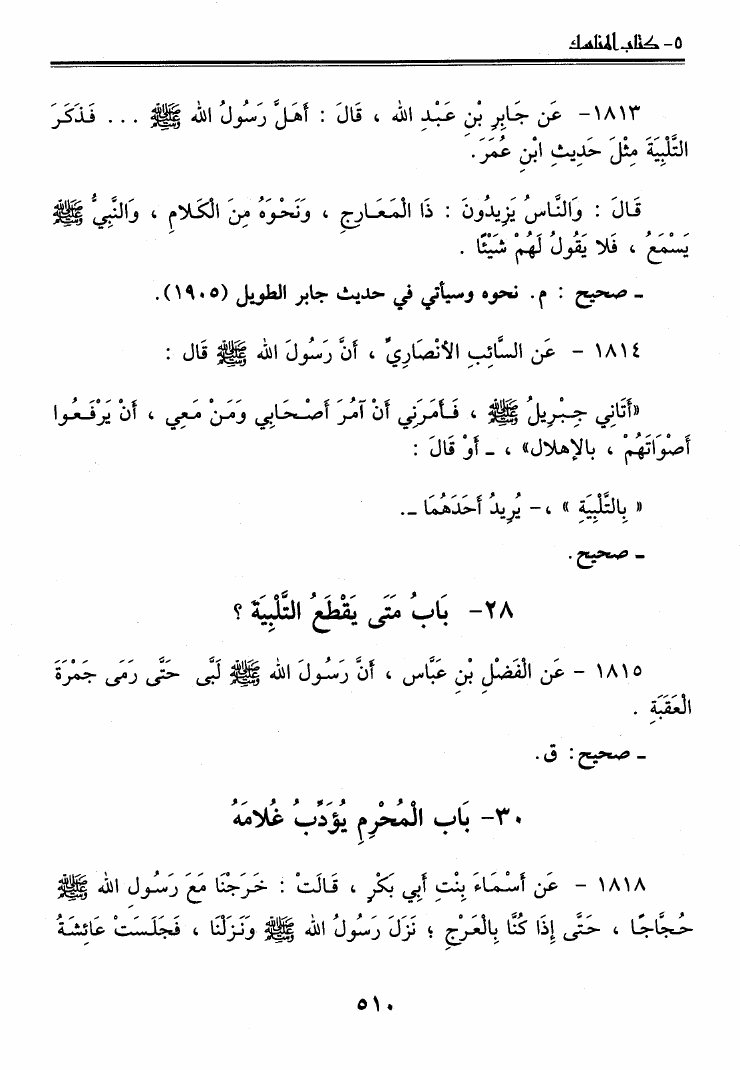 ٥- كتاب المناسك
١٨١٣- عَن جَابِرِ بْنِ عَبْدِ الله ، قَالَ : أَهَلَّ رَسُولُ الله ﷺ ... فَذَكَرَ
التَّلْبِيَةَ مِثْلَ حَدِيثِ ابْنِ عُمَرَ.
قَالَ : وَالنَّاسُ يَزِيدُونَ : ذَا الْمَعَارِجِ ، وَنَحْوَهُ مِنَ الْكَلَامِ ، وَالنَّبِيُّ ﷺ
يَسْمَعُ ، فَلا يَقُولُ لَهُمْ شَيْئًا .
ـ صحيح : م. نحوه وسيأتي في حديث جابر الطويل (١٩٠٥).
١٨١٤ - عَن السَّائِبِ الأَنْصَارِيِّ ، أَنَّ رَسُولَ الله ﷺ قَال :
«أَتَانِي جِبْرِيلُ ﷺ ، فَأَمَرَنِي أَنْ آمُرَ أَصْحَابِي وَمَنْ مَعِي ، أَنْ يَرْفَعُوا
أَصْوَاتَهُمْ ، بالإهلال» ، ـ أَوْ قَالَ :
« بِالتَّلْبِيَةِ » ،- يُرِيدُ أَحَدَهُمَا ـ.
ـ صحيح.
٢٨- بَابُ مَتَى يَقْطَعُ التَّلْبِيَةَ ؟
١٨١٥ - عَن الْفَضْلِ بْنِ عَبَّاس ، أَنَّ رَسُولَ الله ﷺ لَبَّى حَتَّى رَمَى جَمْرَةَ
الْعَقَبَةِ .
ـ صحيح: ق.
٣٠- بَاب الْمُحْرِمِ يُؤَدِّبُ غُلامَهُ
١٨١٨ - عَن أَسْمَاءَ بِنْتِ أَبِي بَكْرٍ ، قَالَتْ : خَرَجْنَا مَعَ رَسُولِ الله ﷺ
حُجَّاجًا ، حَتَّى إِذَا كُنَّا بِالْعَرْجِ ؛ نَزَلَ رَسُولُ الله ﷺ وَنَزَلْنَا ، فَجَلَسَتْ عَائِشَةُ
٥١٠